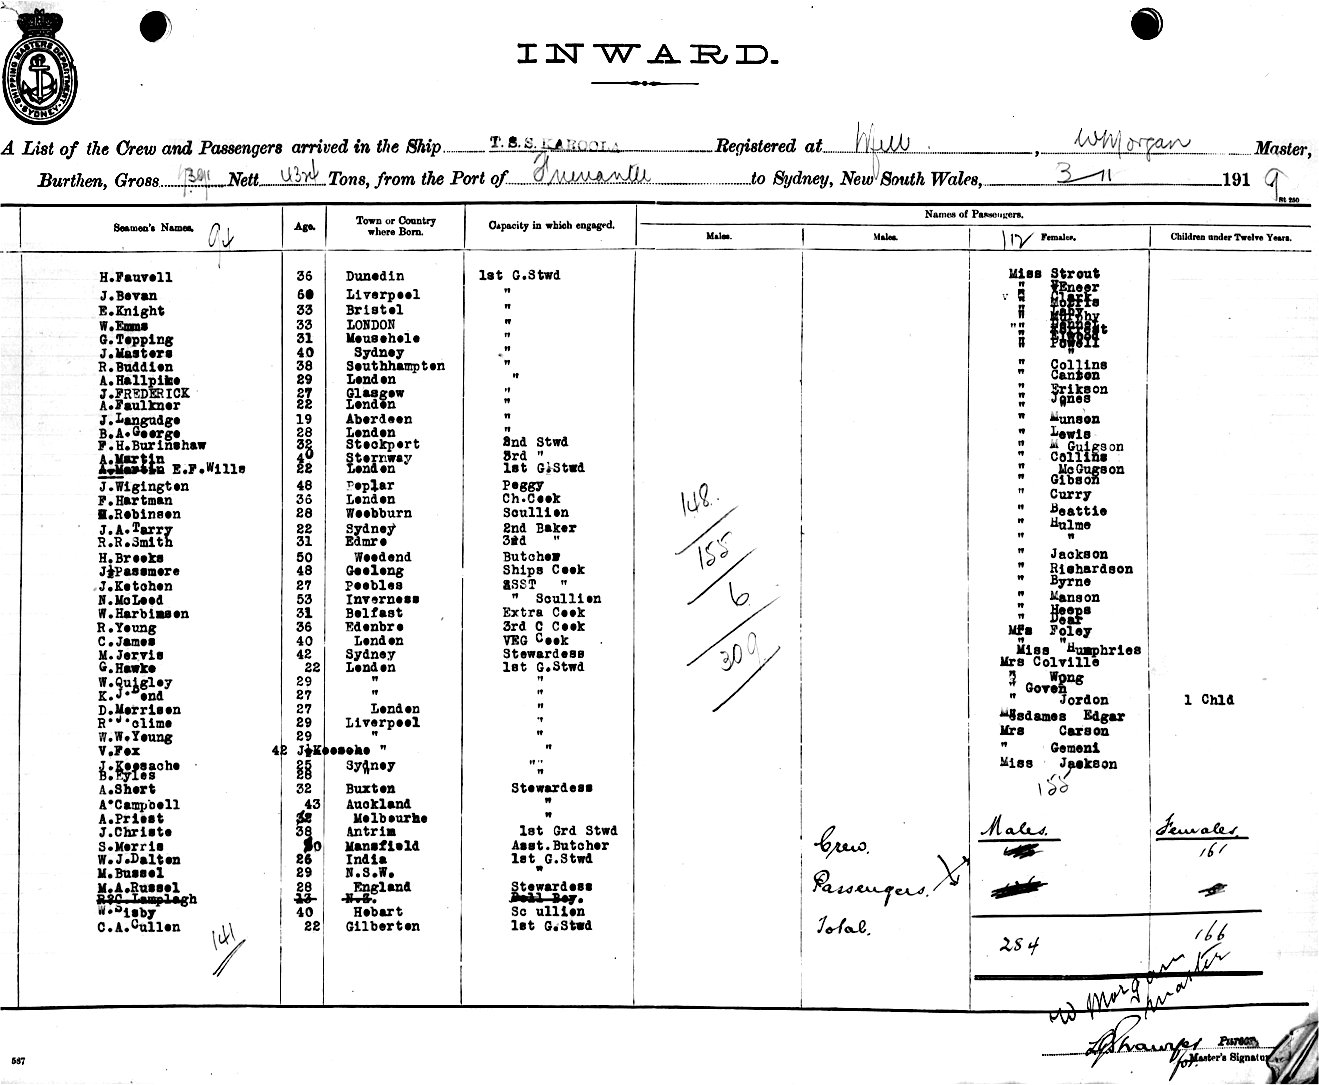 SHIPPING MASTERS DEPARTMENT
SYDNEY
INWARD.
A List of the Crew and Passengers arrived in the Ship T.S.S. KAROOLA Registered at , W Morgan Master,
Burthen, Gross Nett Tons, from the Port of Fremantle to Sydney, New South Wales, 3 11 1919
Rt 250
Seamen's Names. Age. Town or Country where Born. Capacity in which engaged. Names of Passengers.
Males. Males. 112 Females. Children under Twelve Years.
H.Fauvell 36 Dunedin 1st G.Stwd Miss Strout
J.Bevan 60 Liverpool " "
E.Knight 33 Bristol " "
W.Emms 33 LONDON " "
G.Tepping 31 Mousehole " "
J.Masters 40 Sydney " " Powell
R.Buddien 38 Southhampton " " Collins
A.Hallpike 29 London " " Canton
J.FREDERICK 27 Glasgow " " Erikson
A.Faulkner 22 London " " Jones
J.Langudge 19 Aberdeen " " Munson
B.A.George 28 London " " Lewis
F.H.Burinshaw 32 Stockport 2nd Stwd " M Guigson
A.Martin 40 Stornway 3rd " " Collins
A.Martin E.F.Wills 22 London 1st G.Stwd " McGugson
" Gibson
J.Wigington 48 Poplar Peggy " Curry
F.Hartman 36 London Ch.Cook " Beattie
H.Robinson 28 Woobburn Scullion " Hulme
J.A.Tarry 22 Sydney 2nd Baker " "
R.R.Smith 31 Edmre 3rd "
H.Brooks 50 Woodend Butcher " Jackson
J.Passmore 48 Geelong Ships Cook " Richardson
J.Ketchen 27 Peebles ASST " " Byrne
N.McLeod 53 Inverness " Scullion " Manson
W.Harbinson 31 Belfast Extra Cook " Heeps
" Dear
R.Young 36 Edenbre 3rd C Cook Mrs Foley
C.James 40 London VEG Cook " "
M.Jervis 42 Sydney Stewardess Miss Humphries
G.Hawke 22 London 1st G.Stwd Mrs Colville
W.Quigley 29 " " " Wong
K.J. end 27 " " " Goven
D.Morrison 27 London " " Jordon 1 Chld
R clime 29 Liverpool " Mesdames Edgar
W.W.Young 29 " " Mrs Carson
V.Fox 42 J.Keosche " " " Gemeni
J.Keosache 25 Sydney " Miss Jackson
B.Eyles 28 " "
A.Short 32 Buxton Stewardess 155
A Campbell 43 Auckland "
A.Priest 32 Melbourhe "
J.Christe 38 Antrim 1st Grd Stwd
S.Morris 30 Mansfield Asst.Butcher
W.J.Dalton 26 India 1st G.Stwd
M.Bussel 29 N.S.W. "
M.A.Russel 28 England Stewardess
R?C.Lamplagh 13 N.Z. Bell Boy.
W.Sisby 40 Hobart Sc ullion
C.A.Cullen 22 Gilberton 1st G.Stwd
141
148.
155
6
309
Males. Females.
Crew. 161
Passengers.
Total. 284 166
W Morgan
Master
Purser
for Master's Signature
587